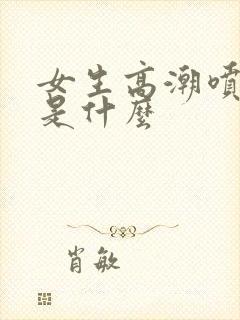 女生高潮噴
是什麼
肖敏